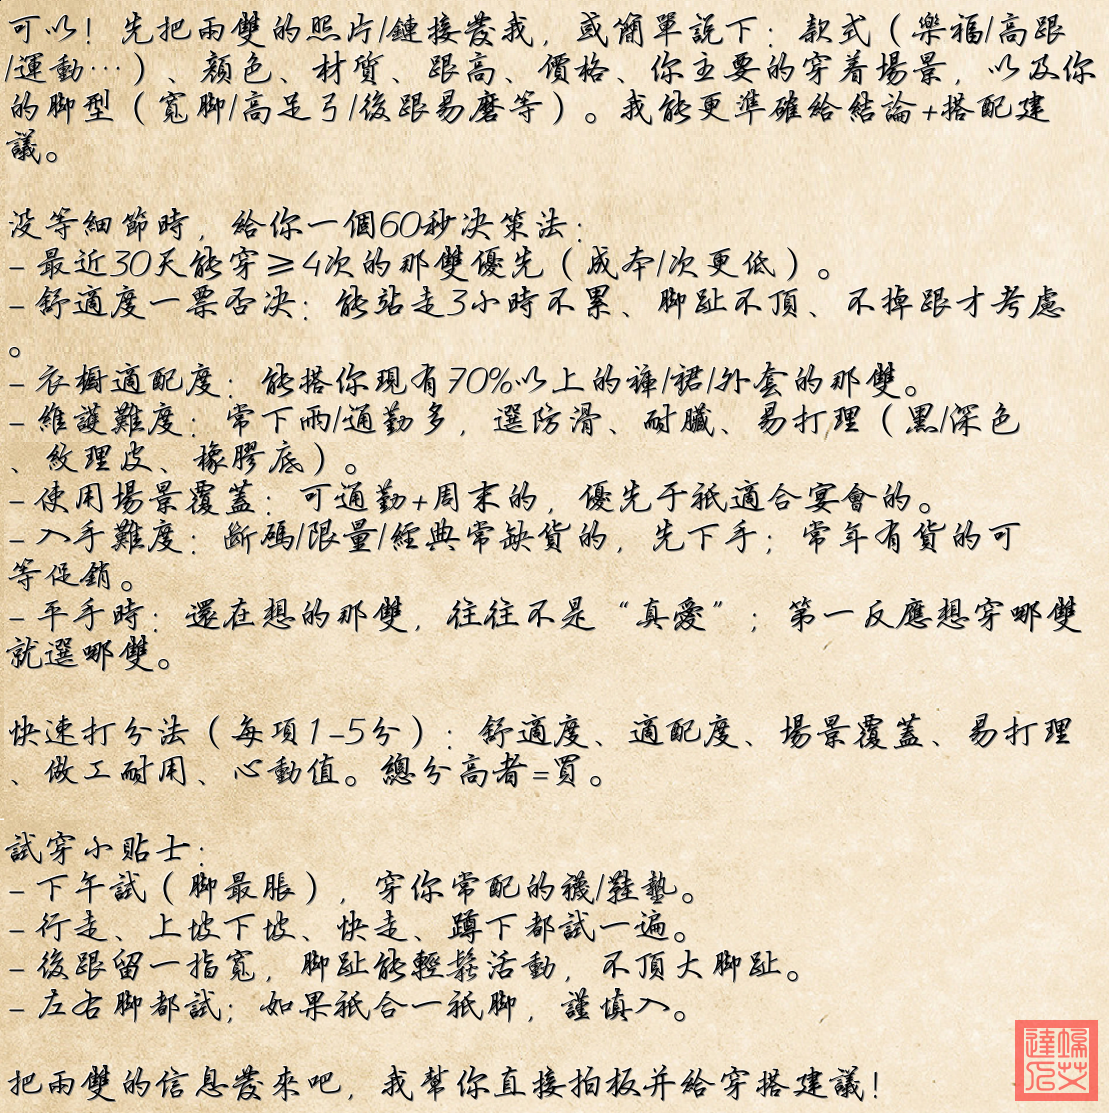 可以！先把兩雙的照片/鏈接發我，或簡單説下：款式（樂福/高跟
/運動…）、顔色、材質、跟高、價格、你主要的穿着場景，以及你
的脚型（寬脚/高足弓/後跟易磨等）。我能更準確給結論+搭配建
議。
没等細節時，給你一個60秒决策法：
- 最近30天能穿≥4次的那雙優先（成本/次更低）。
- 舒適度一票否决：能站走3小時不累、脚趾不頂、不掉跟才考慮
。
- 衣橱適配度：能搭你現有70%以上的褲/裙/外套的那雙。
- 維護難度：常下雨/通勤多，選防滑、耐臟、易打理（黑/深色
、紋理皮、橡膠底）。
- 使用場景覆蓋：可通勤+周末的，優先于祇適合宴會的。
- 入手難度：斷碼/限量/經典常缺貨的，先下手；常年有貨的可
等促銷。
- 平手時：還在想的那雙，往往不是“真愛”；第一反應想穿哪雙
就選哪雙。
快速打分法（每項1-5分）：舒適度、適配度、場景覆蓋、易打理
、做工耐用、心動值。總分高者=買。
試穿小貼士：
- 下午試（脚最脹），穿你常配的襪/鞋墊。
- 行走、上坡下坡、快走、蹲下都試一遍。
- 後跟留一指寬，脚趾能輕鬆活動，不頂大脚趾。
- 左右脚都試；如果祇合一祇脚，謹慎入。
把兩雙的信息發來吧，我幫你直接拍板并給穿搭建議！